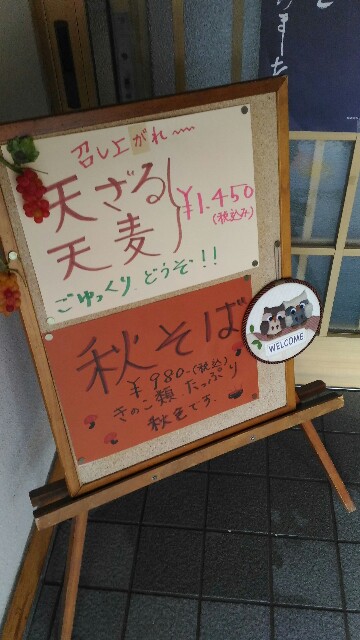 召し上がれ〜
天ざる
天麦
¥1.450
(税込み)
ごゆっくり どうぞ!!
秋そば
¥980-(税込)
きのこ類 たっぷり
秋色です.
WELCOME
ました